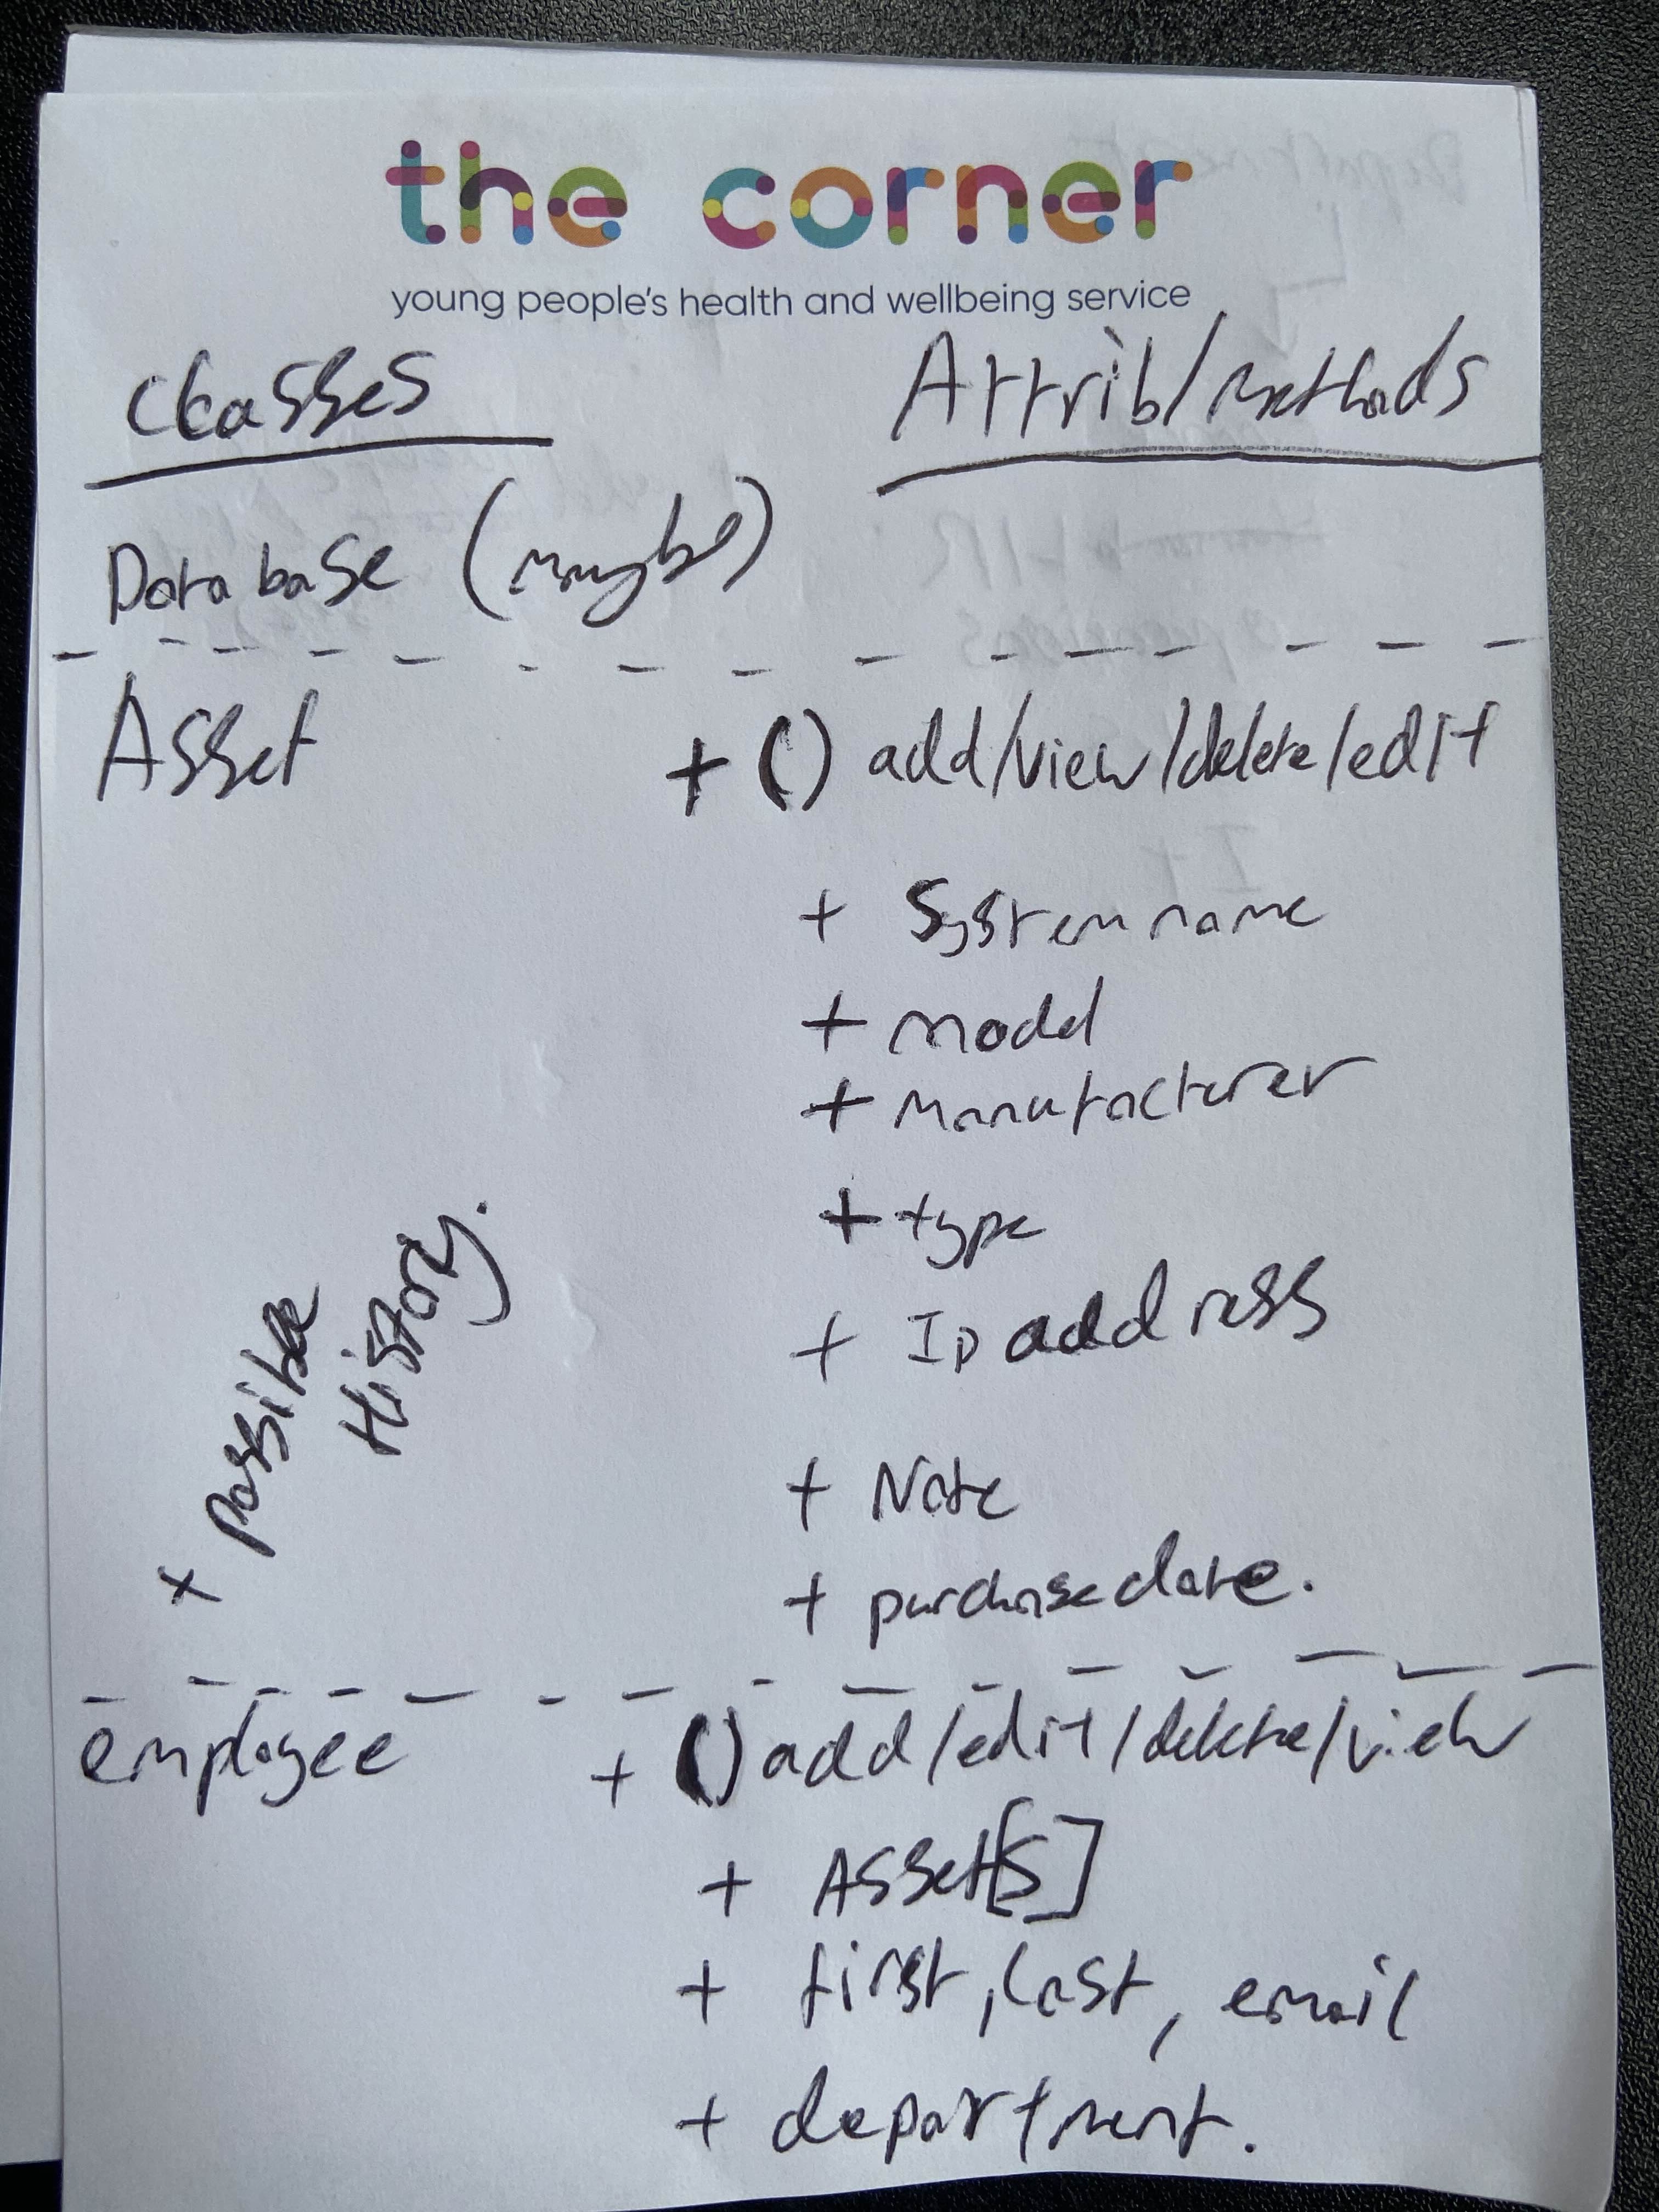 the corner
young people's health and wellbeing service
Classes Attrib/methods
Database (maybe)
Asset + () add/view/delete/edit
+ System name
+ model
+ Manufacturer
+ type
+ Ip address
+ possible
History.
+ Note
+ purchase date.
employee + () add/edit/delete/view
+ Asset[s]
+ first, last, email
+ department.